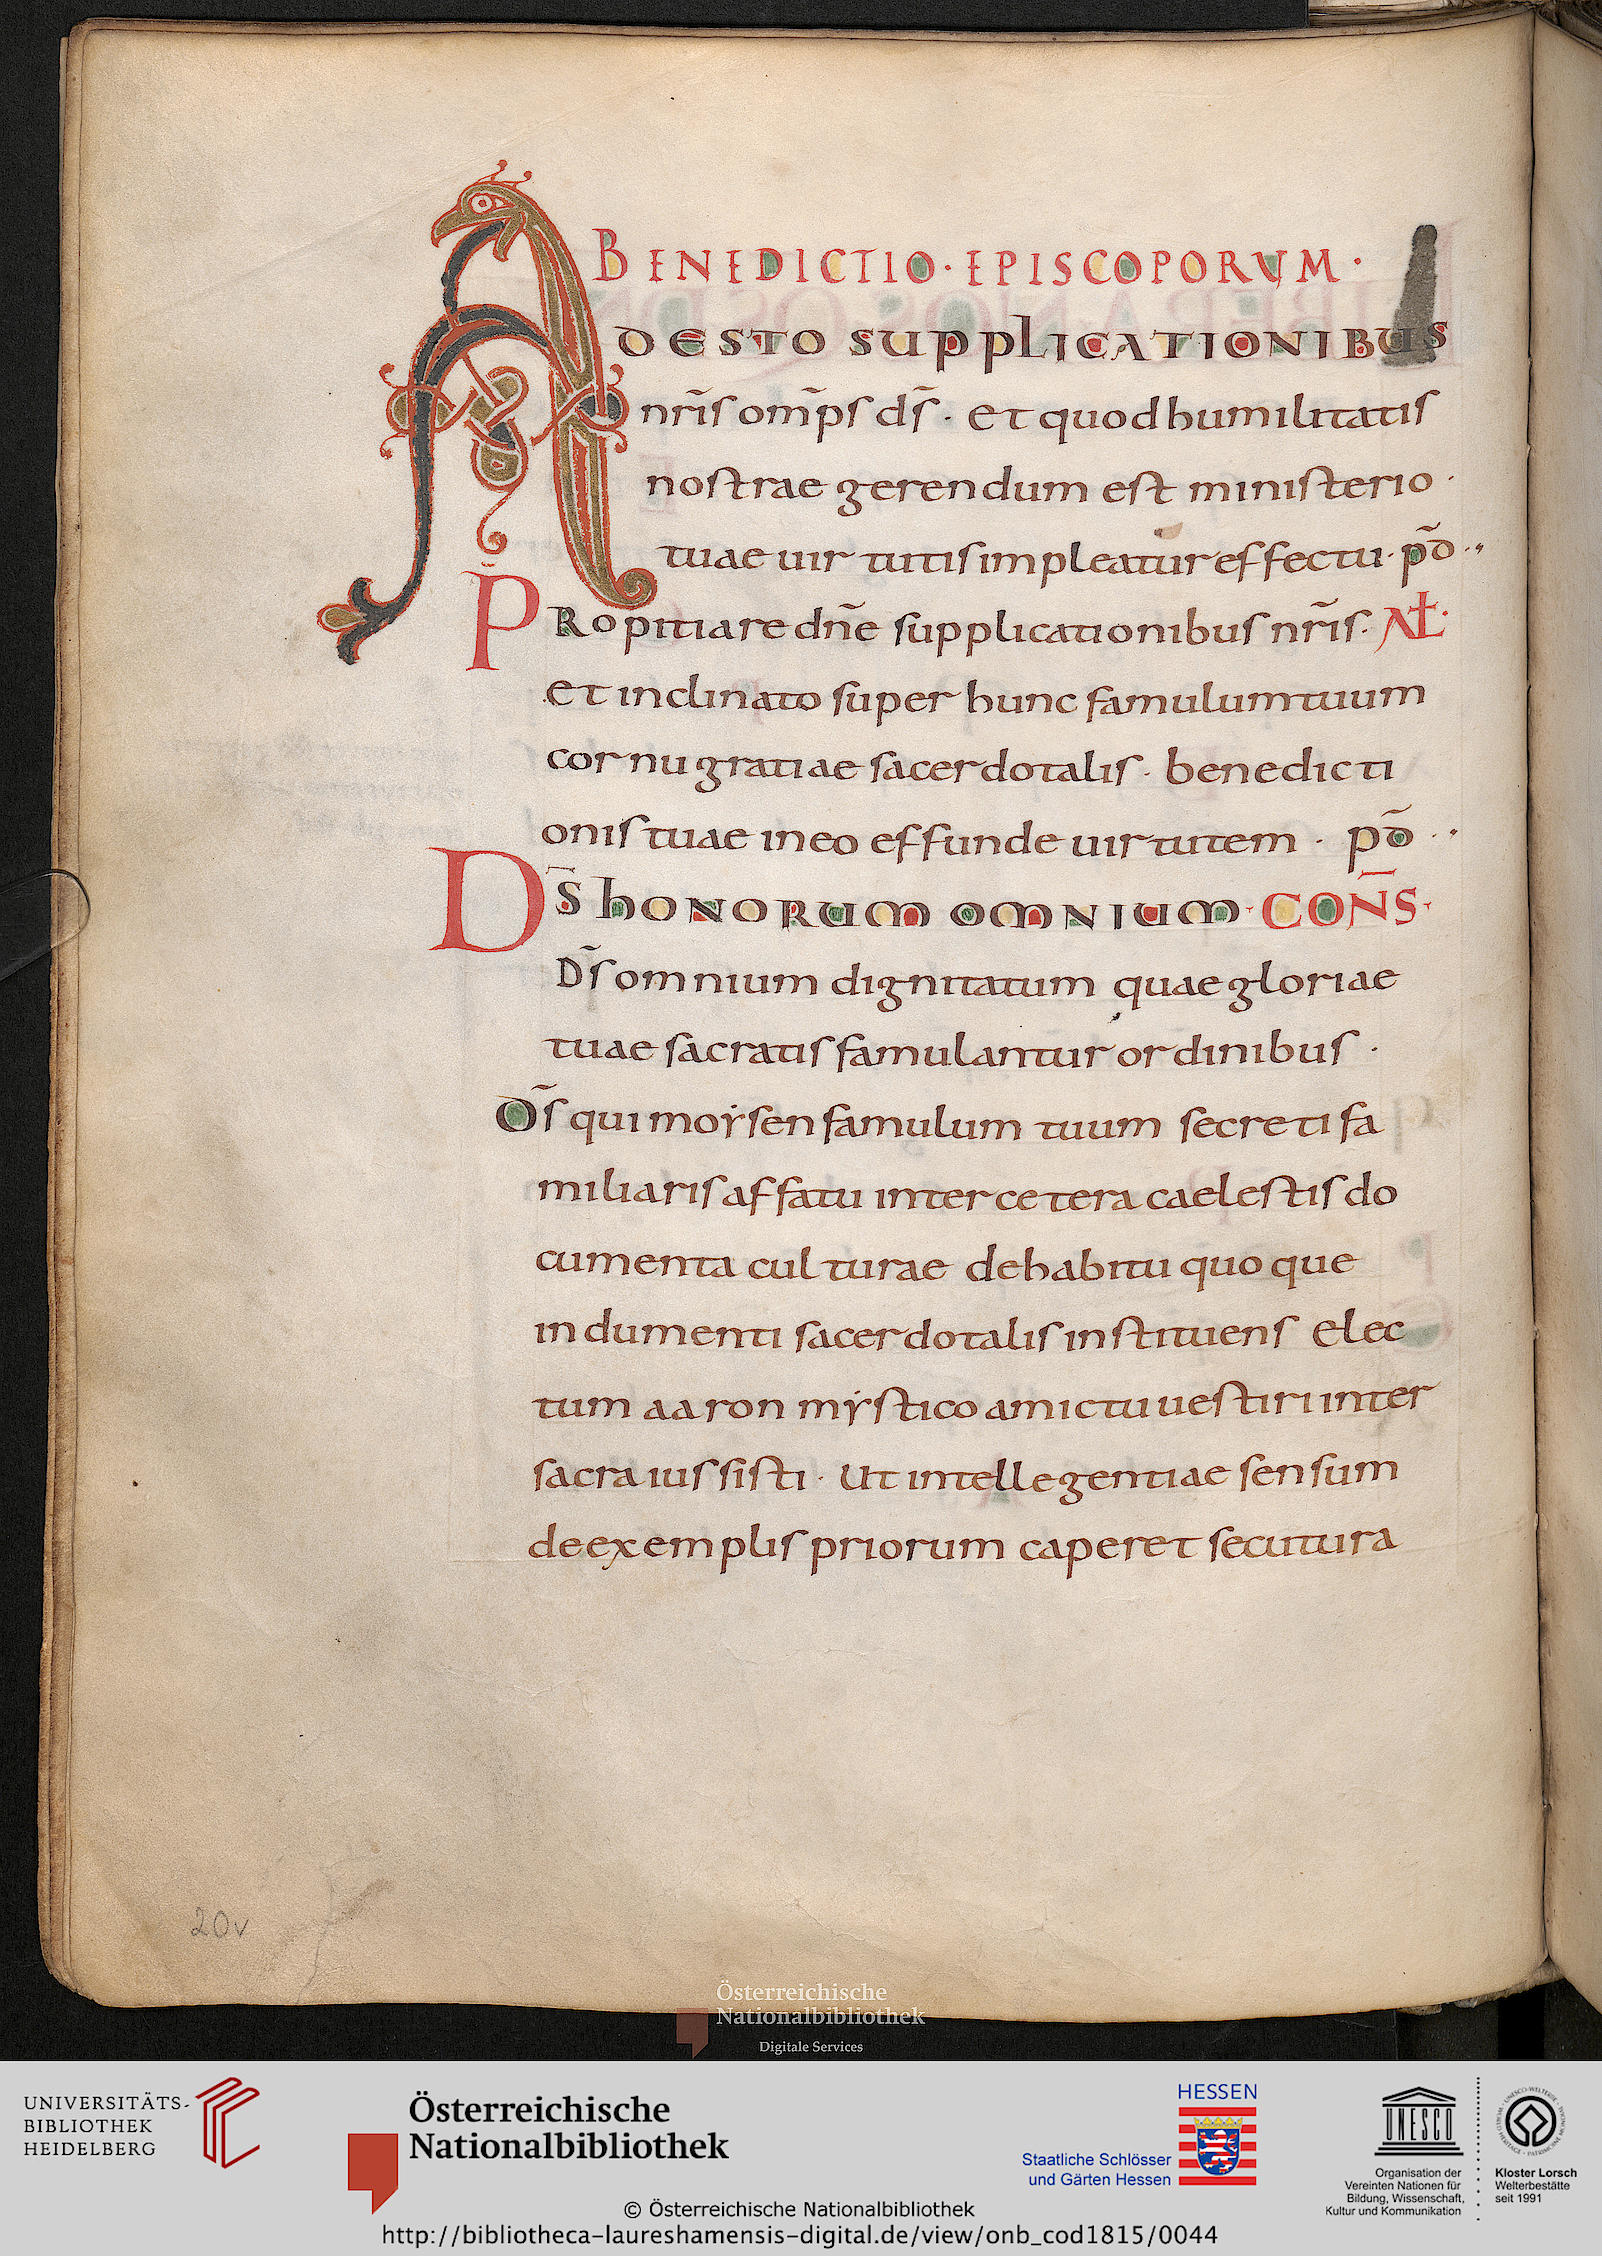 BENEDICTIO · EPISCOPORUM ·
ADESTO SUPPLICATIONIBUS
nr̄is om̄ps ds̄ · et quod humilitatis
nostrae gerendum est ministerio ·
tuae uirtutis impleatur effectu · pd̄ ··
PRopitiare dn̄e supplicationibus nr̄is · AŁ ·
et inclinato super hunc famulum tuum
cornu gratiae sacerdotalis · benedicti
onis tuae in eo effunde uirtutem · pd̄ ··
DS̄ HONORUM OMNIUM · CON̄S ·
Ds̄ omnium dignitatum quae gloriae
tuae sacratis famulantur ordinibus ·
Ds̄ qui moẏsen famulum tuum secreti fa
miliaris affatu inter cetera caelestis do
cumenta culturae de habitu quoque
indumenti sacerdotalis instituens elec
tum aaron mẏstico amictu uestiri inter
sacra iussisti · Ut intellegentiae sensum
de exemplis priorum caperet secutura
20v
Österreichische
Nationalbibliothek
Digitale Services
UNIVERSITÄTS-
BIBLIOTHEK
HEIDELBERG
Österreichische
Nationalbibliothek
HESSEN
Staatliche Schlösser
und Gärten Hessen
UNESCO
Organisation der
Vereinten Nationen für
Bildung, Wissenschaft,
Kultur und Kommunikation
Kloster Lorsch
Welterbestätte
seit 1991
© Österreichische Nationalbibliothek
http://bibliotheca-laureshamensis-digital.de/view/onb_cod1815/0044